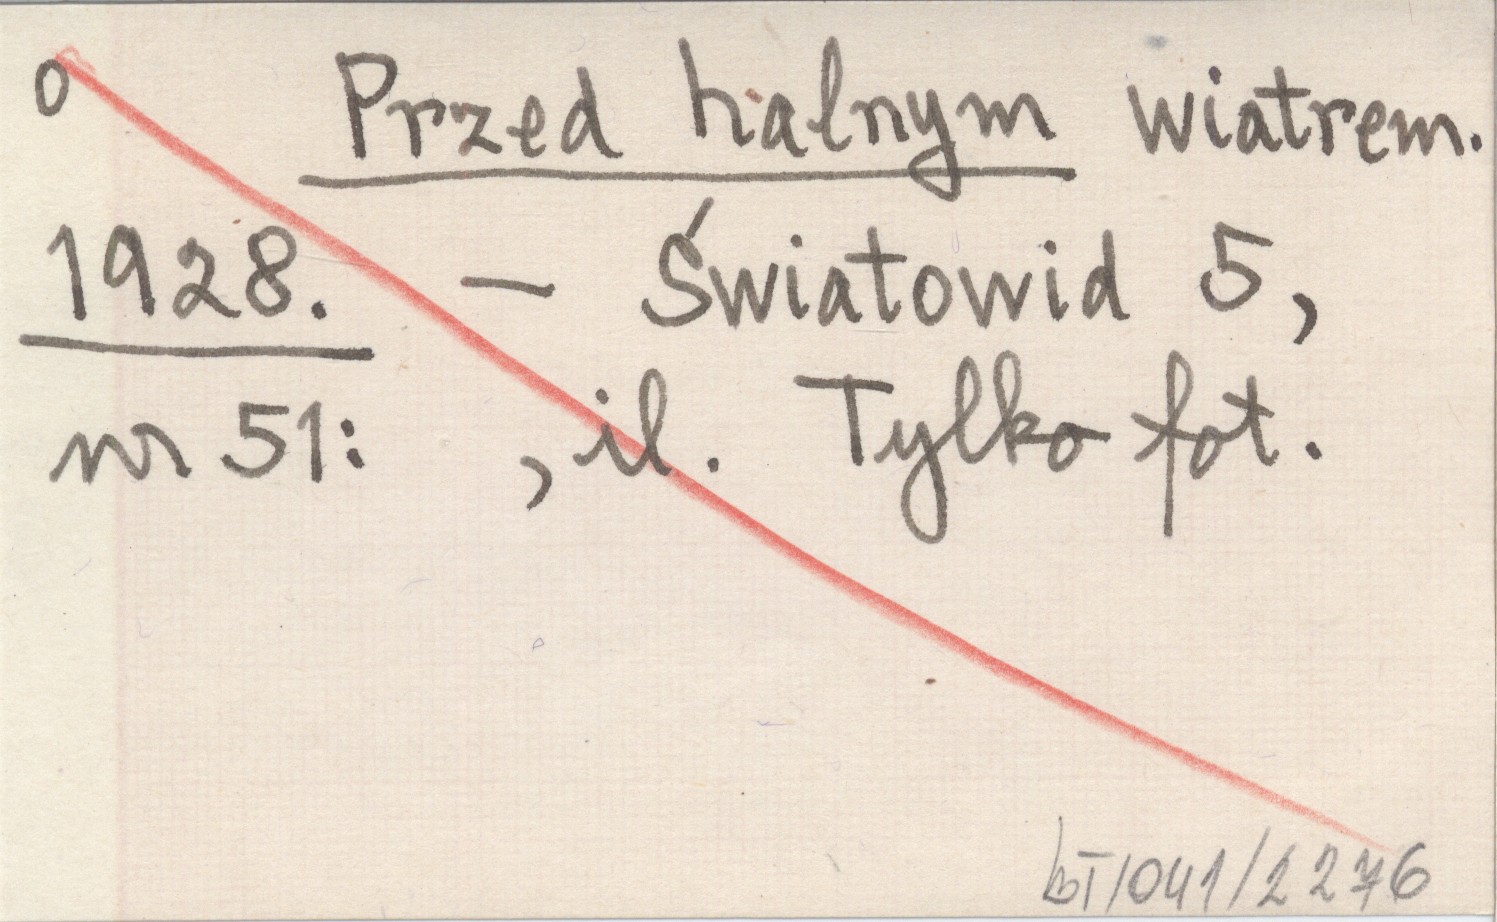 0 Przed halnym wiatrem.
1928. – Światowid 5,
nr 51: , il. Tylko fot.
bT/041/2276